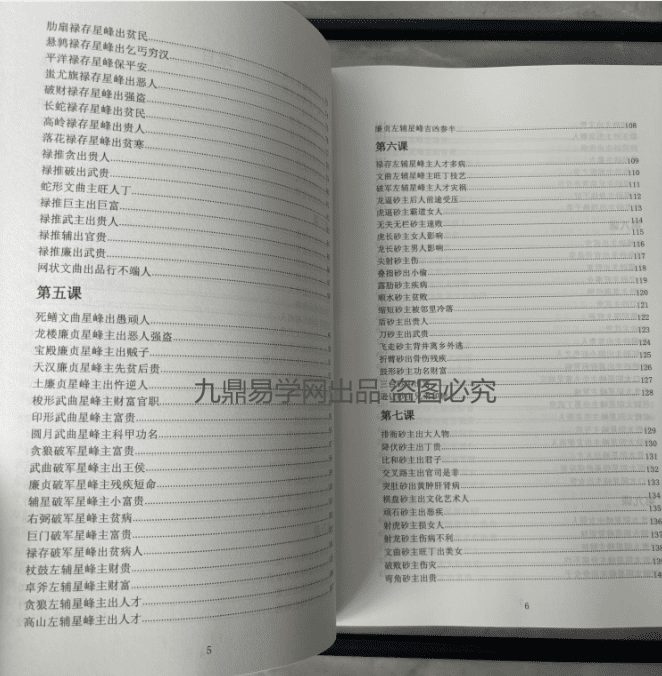 肋扇禄存星峰出贫民
悬鹑禄存星峰出乞丐穷汉
平洋禄存星峰保平安
蚩尤旗禄存星峰出恶人
破财禄存星峰出强盗
长蛇禄存星峰出贫民
高岭禄存星峰出贵人
落花禄存星峰出贫寒
禄推贪出贵人
禄推破出武贵
蛇形文曲主旺人丁
禄推巨主出巨富
禄推武主出贵人
禄推辅出官贵
禄推廉出武贵
网状文曲出品行不端人
第五课
死鳝文曲星峰出愚顽人
龙楼廉贞星峰主出恶人强盗
宝殿廉贞星峰主出贼子
天汉廉贞星峰主先贫后贵
土廉贞星峰主出忤逆人
梭形武曲星峰主财富官职
印形武曲星峰主富贵
圆月武曲星峰主科甲功名
贪狼破军星峰主富贵
武曲破军星峰主出王侯
廉贞破军星峰主残疾短命
辅星破军星峰主小富贵
右弼破军星峰主贫病
巨门破军星峰主富贵
禄存破军星峰出贫病人
杖鼓左辅星峰主财贵
卓斧左辅星峰主财富
贪狼左辅星峰主出人才
高山左辅星峰主出人才
5
廉贞左辅星峰吉凶参半 108
第六课
禄存左辅星峰主人才多病 109
文曲左辅星峰主旺丁技艺 110
破军左辅星峰主人才灾祸 111
龙逼砂主后人前途受压 112
虎逼砂主霸道女人 113
无关无栏砂主退败 114
虎长砂主女人影响 115
龙长砂主男人影响 116
尖射砂主伤 117
叠指砂出小偷 118
露肋砂主疾病 119
顺水砂主贫败 120
缩短砂主被邻里冷落 121
盾砂主出贵人 122
刀砂主出武贵 123
飞走砂主背井离乡外逃 124
折臂砂出骨伤残疾 125
鼓形砂主功名财富 126
127
128
九鼎易学网出品 盗图必究
第七课
排衙砂主出大人物 129
降伏砂主出丁贵 130
比和砂主出君子 131
交叉路主出官司是非 132
突肚砂出黄肿肝肾病 133
棋盘砂主出文化艺术人 134
顽石砂主出恶疾 135
射虎砂主损女人 136
射龙砂主伤病不利 137
文曲砂主旺丁出美女 138
破败砂主伤灾 139
弯角砂主出贵
6